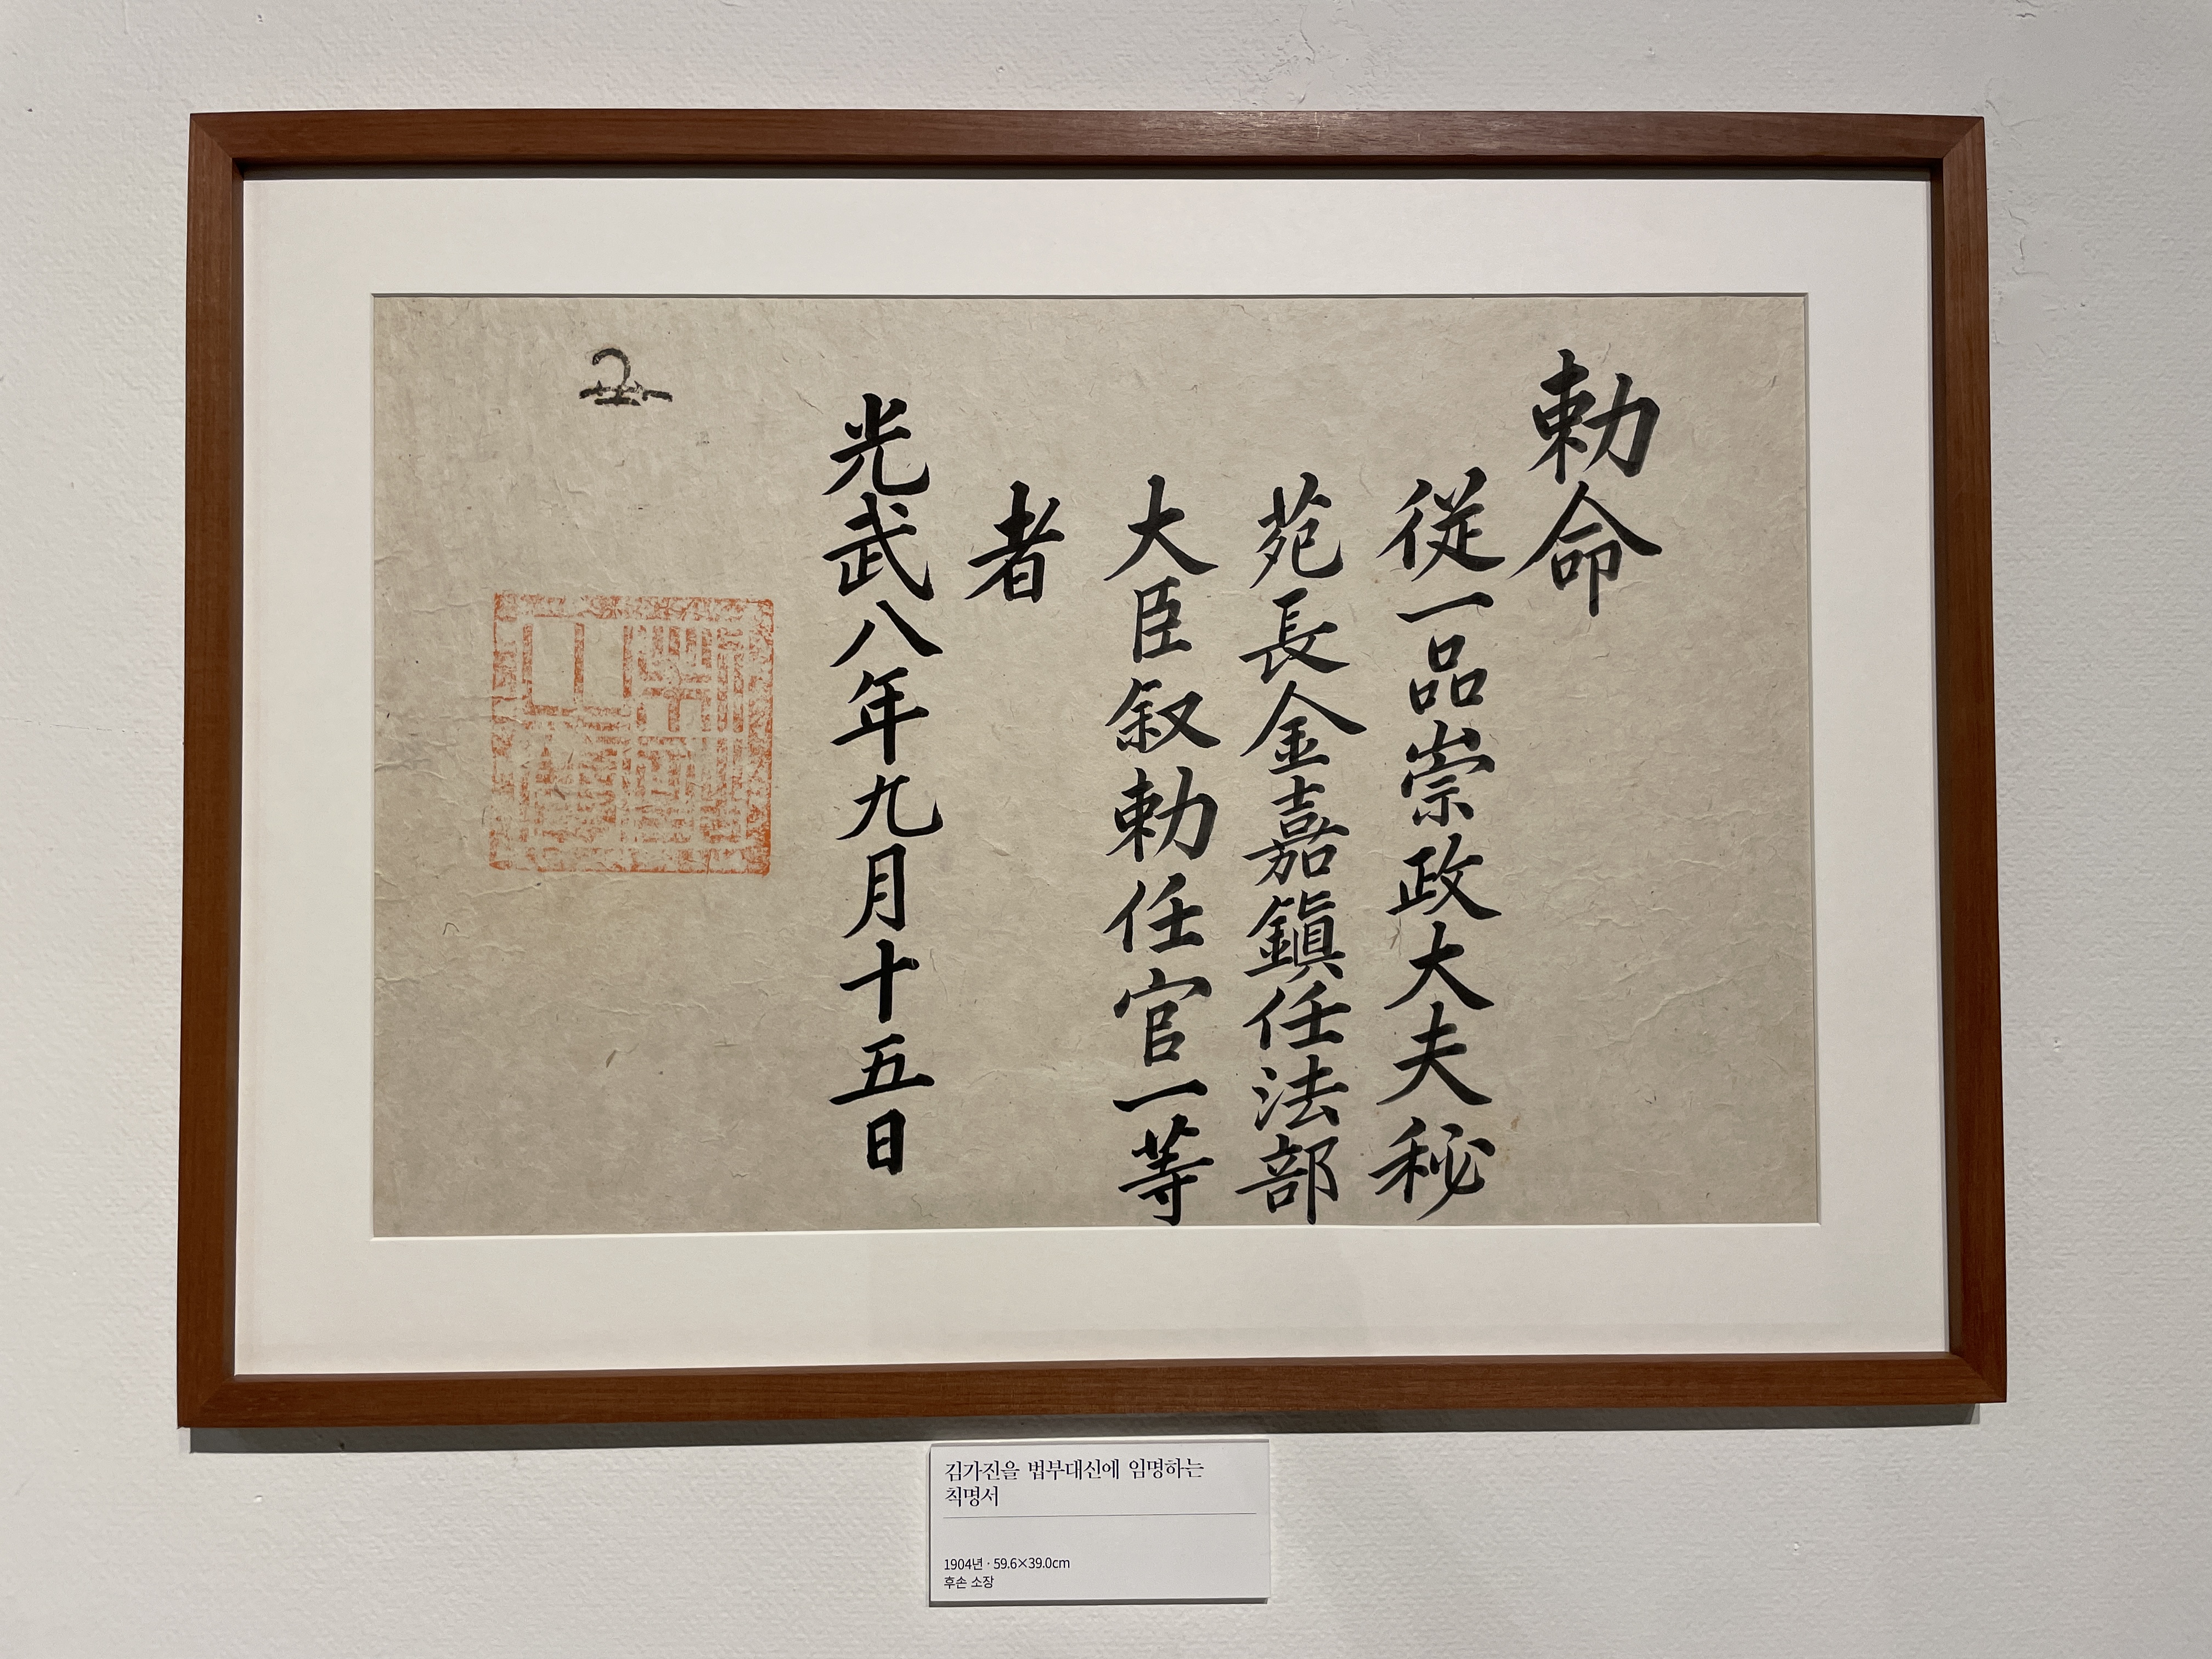 勅命
従一品崇政大夫秘
苑長金嘉鎭任法部
大臣叙勅任官一等
者
光武八年九月十五日
김가진을 법부대신에 임명하는
칙명서
1904년 · 59.6×39.0cm
후손 소장